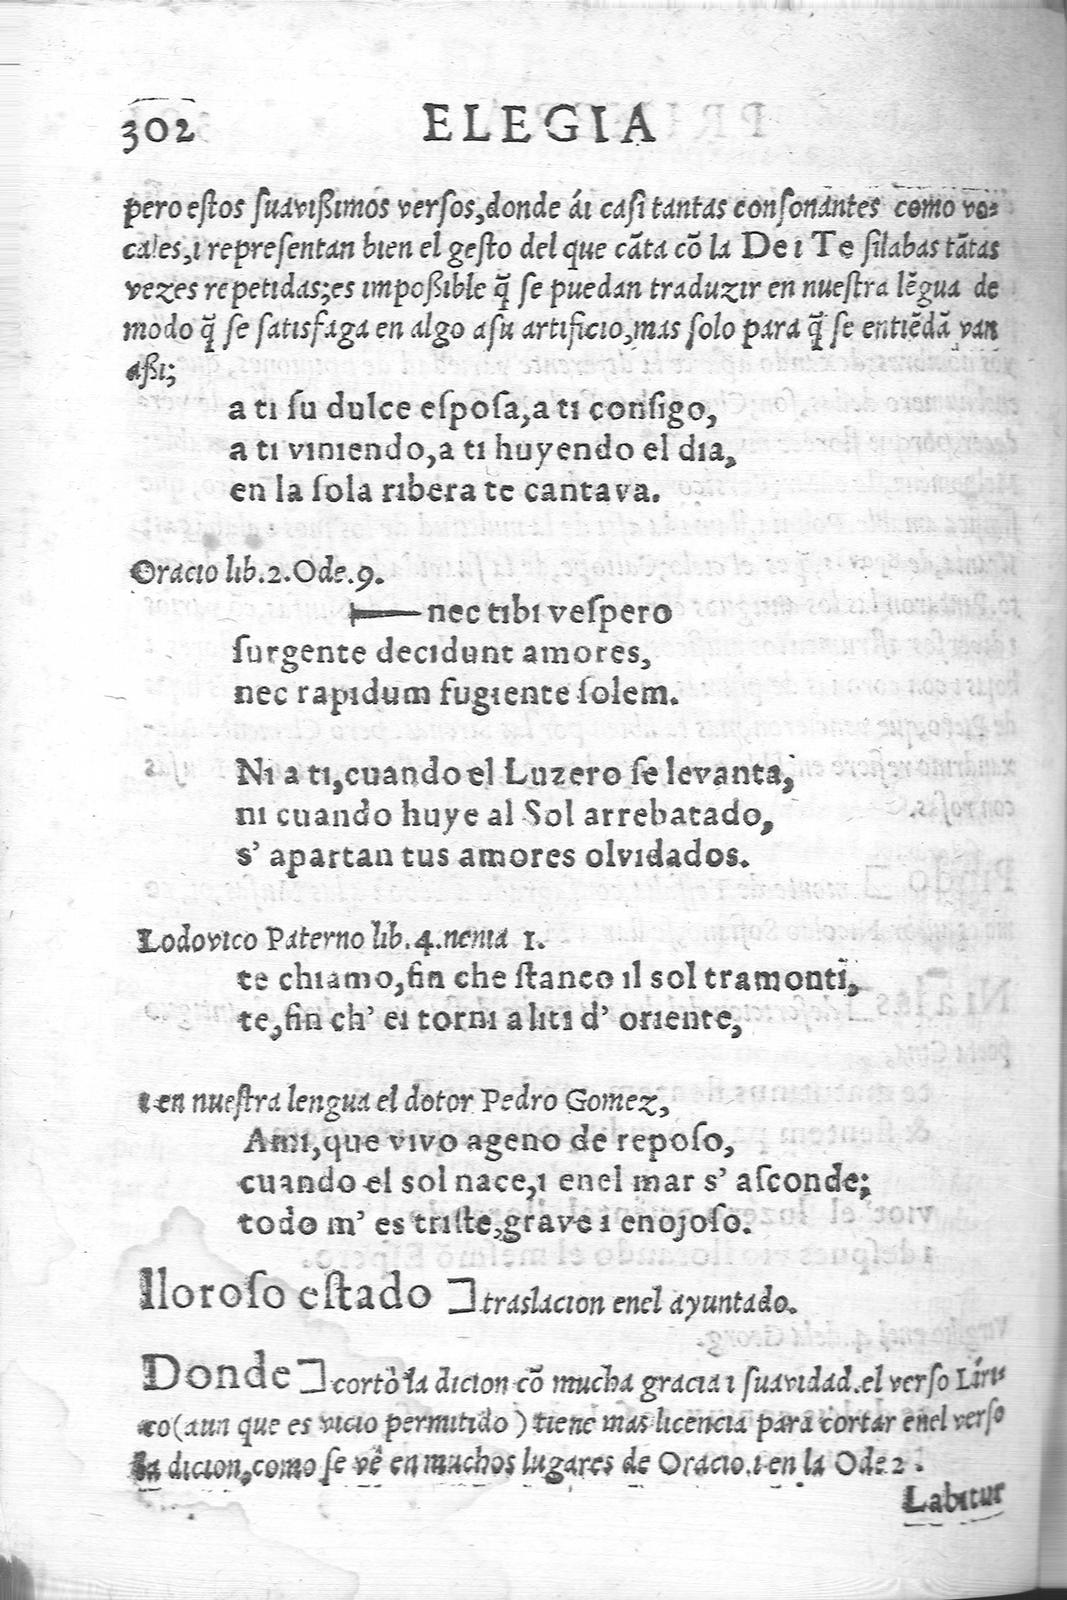 302 ELEGIA
pero estos ſuavißimos verſos,donde ái caſi tantas conſonantes como vo-
cales,i repreſentan bien el geſto del que cāta cō la De i Te ſilabas tātas
vezes repetidas;es impoßible q̃ ſe puedan traduzir en nueſtra lēgua de
modo q̃ ſe ſatisfaga en algo aſu artificio,mas ſolo para q̃ ſe entiēdā van
aßi;
a ti ſu dulce eſpoſa,a ti conſigo,
a ti viniendo,a ti huyendo el dia,
en la ſola ribera te cantava.
Oracio lib.2.Ode.9.
— nec tibi veſpero
ſurgente decidunt amores,
nec rapidum fugiente ſolem.
Ni a ti,cuando el Luzero ſe levanta,
ni cuando huye al Sol arrebatado,
s' apartan tus amores olvidados.
Lodovico Paterno lib.4.nenia 1.
te chiamo,fin che ſtanco il sol tramonti,
te,fin ch' ei torni a liti d' oriente,
i en nueſtra lengua el dotor Pedro Gomez,
Ami,que vivo ageno de repoſo,
cuando el sol nace,i enel mar s' aſconde;
todo m' es triſte,grave i enojoſo.
lloroſo eſtado ⊐ traslacion enel ayuntado.
Donde ⊐ cortò la dicion cō mucha gracia i ſuavidad.el verſo Líri-
co(aun que es vicio permitido) tiene mas licencia para cortar enel verſo
la dicion,como ſe vê en muchos lugares de Oracio.i en la Ode 2.
Labitur